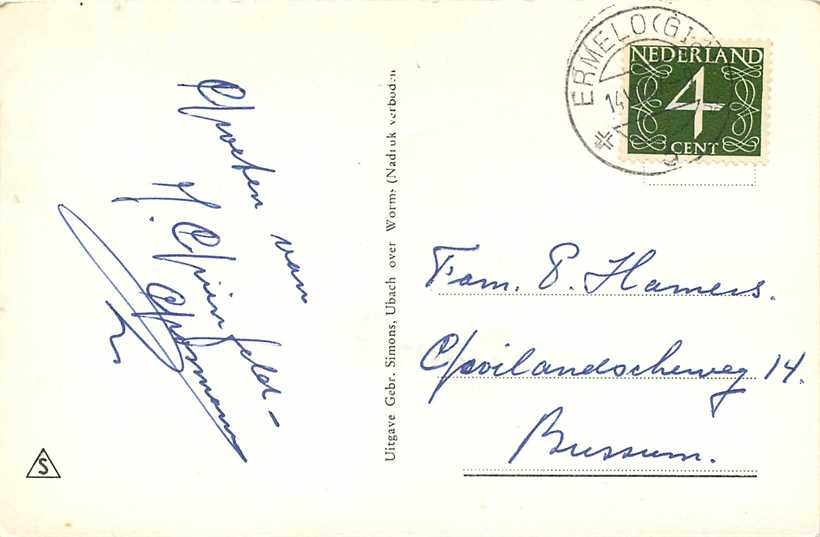 Groeten van
fl. Grünfeld-
Grosmann
Uitgave Gebr. Simons, Ubach over Worms (Nadruk verboden
S
ERMELO (Gld
14
NEDERLAND
4
CENT
Fam. P. Hamers.
Gooilandscheweg 14.
Bussum.